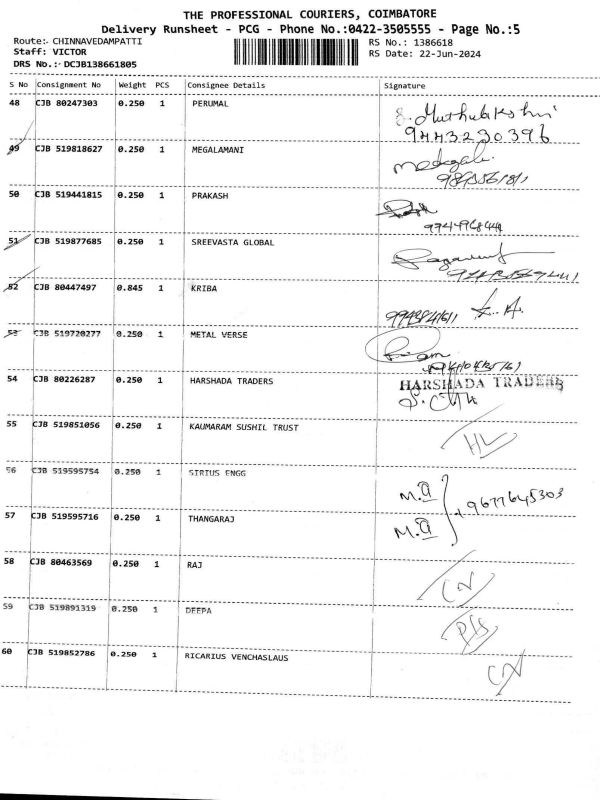 THE PROFESSIONAL COURIERS, COIMBATORE
Delivery Runsheet - PCG - Phone No.:0422-3505555 - Page No.:5
Route:- CHINNAVEDAMPATTI
Staff: VICTOR
DRS No.:- DCJB138661805
RS No.: 1386618
RS Date: 22-Jun-2024
S No Consignment No Weight PCS Consignee Details Signature
48 CJB 80247303 0.250 1 PERUMAL
9443230396
49 CJB 519818627 0.250 1 MEGALAMANI
50 CJB 519441815 0.250 1 PRAKASH
51 CJB 519877685 0.250 1 SREEVASTA GLOBAL
52 CJB 80447497 0.845 1 KRIBA
53 CJB 519720277 0.250 1 METAL VERSE
54 CJB 80226287 0.250 1 HARSHADA TRADERS HARSHADA TRADERS
55 CJB 519851056 0.250 1 KAUMARAM SUSHIL TRUST
56 CJB 519595754 0.250 1 SIRIUS ENGG
9677645303
57 CJB 519595716 0.250 1 THANGARAJ
58 CJB 80463569 0.250 1 RAJ
59 CJB 519891319 0.250 1 DEEPA
60 CJB 519852786 0.250 1 RICARIUS VENCHASLAUS